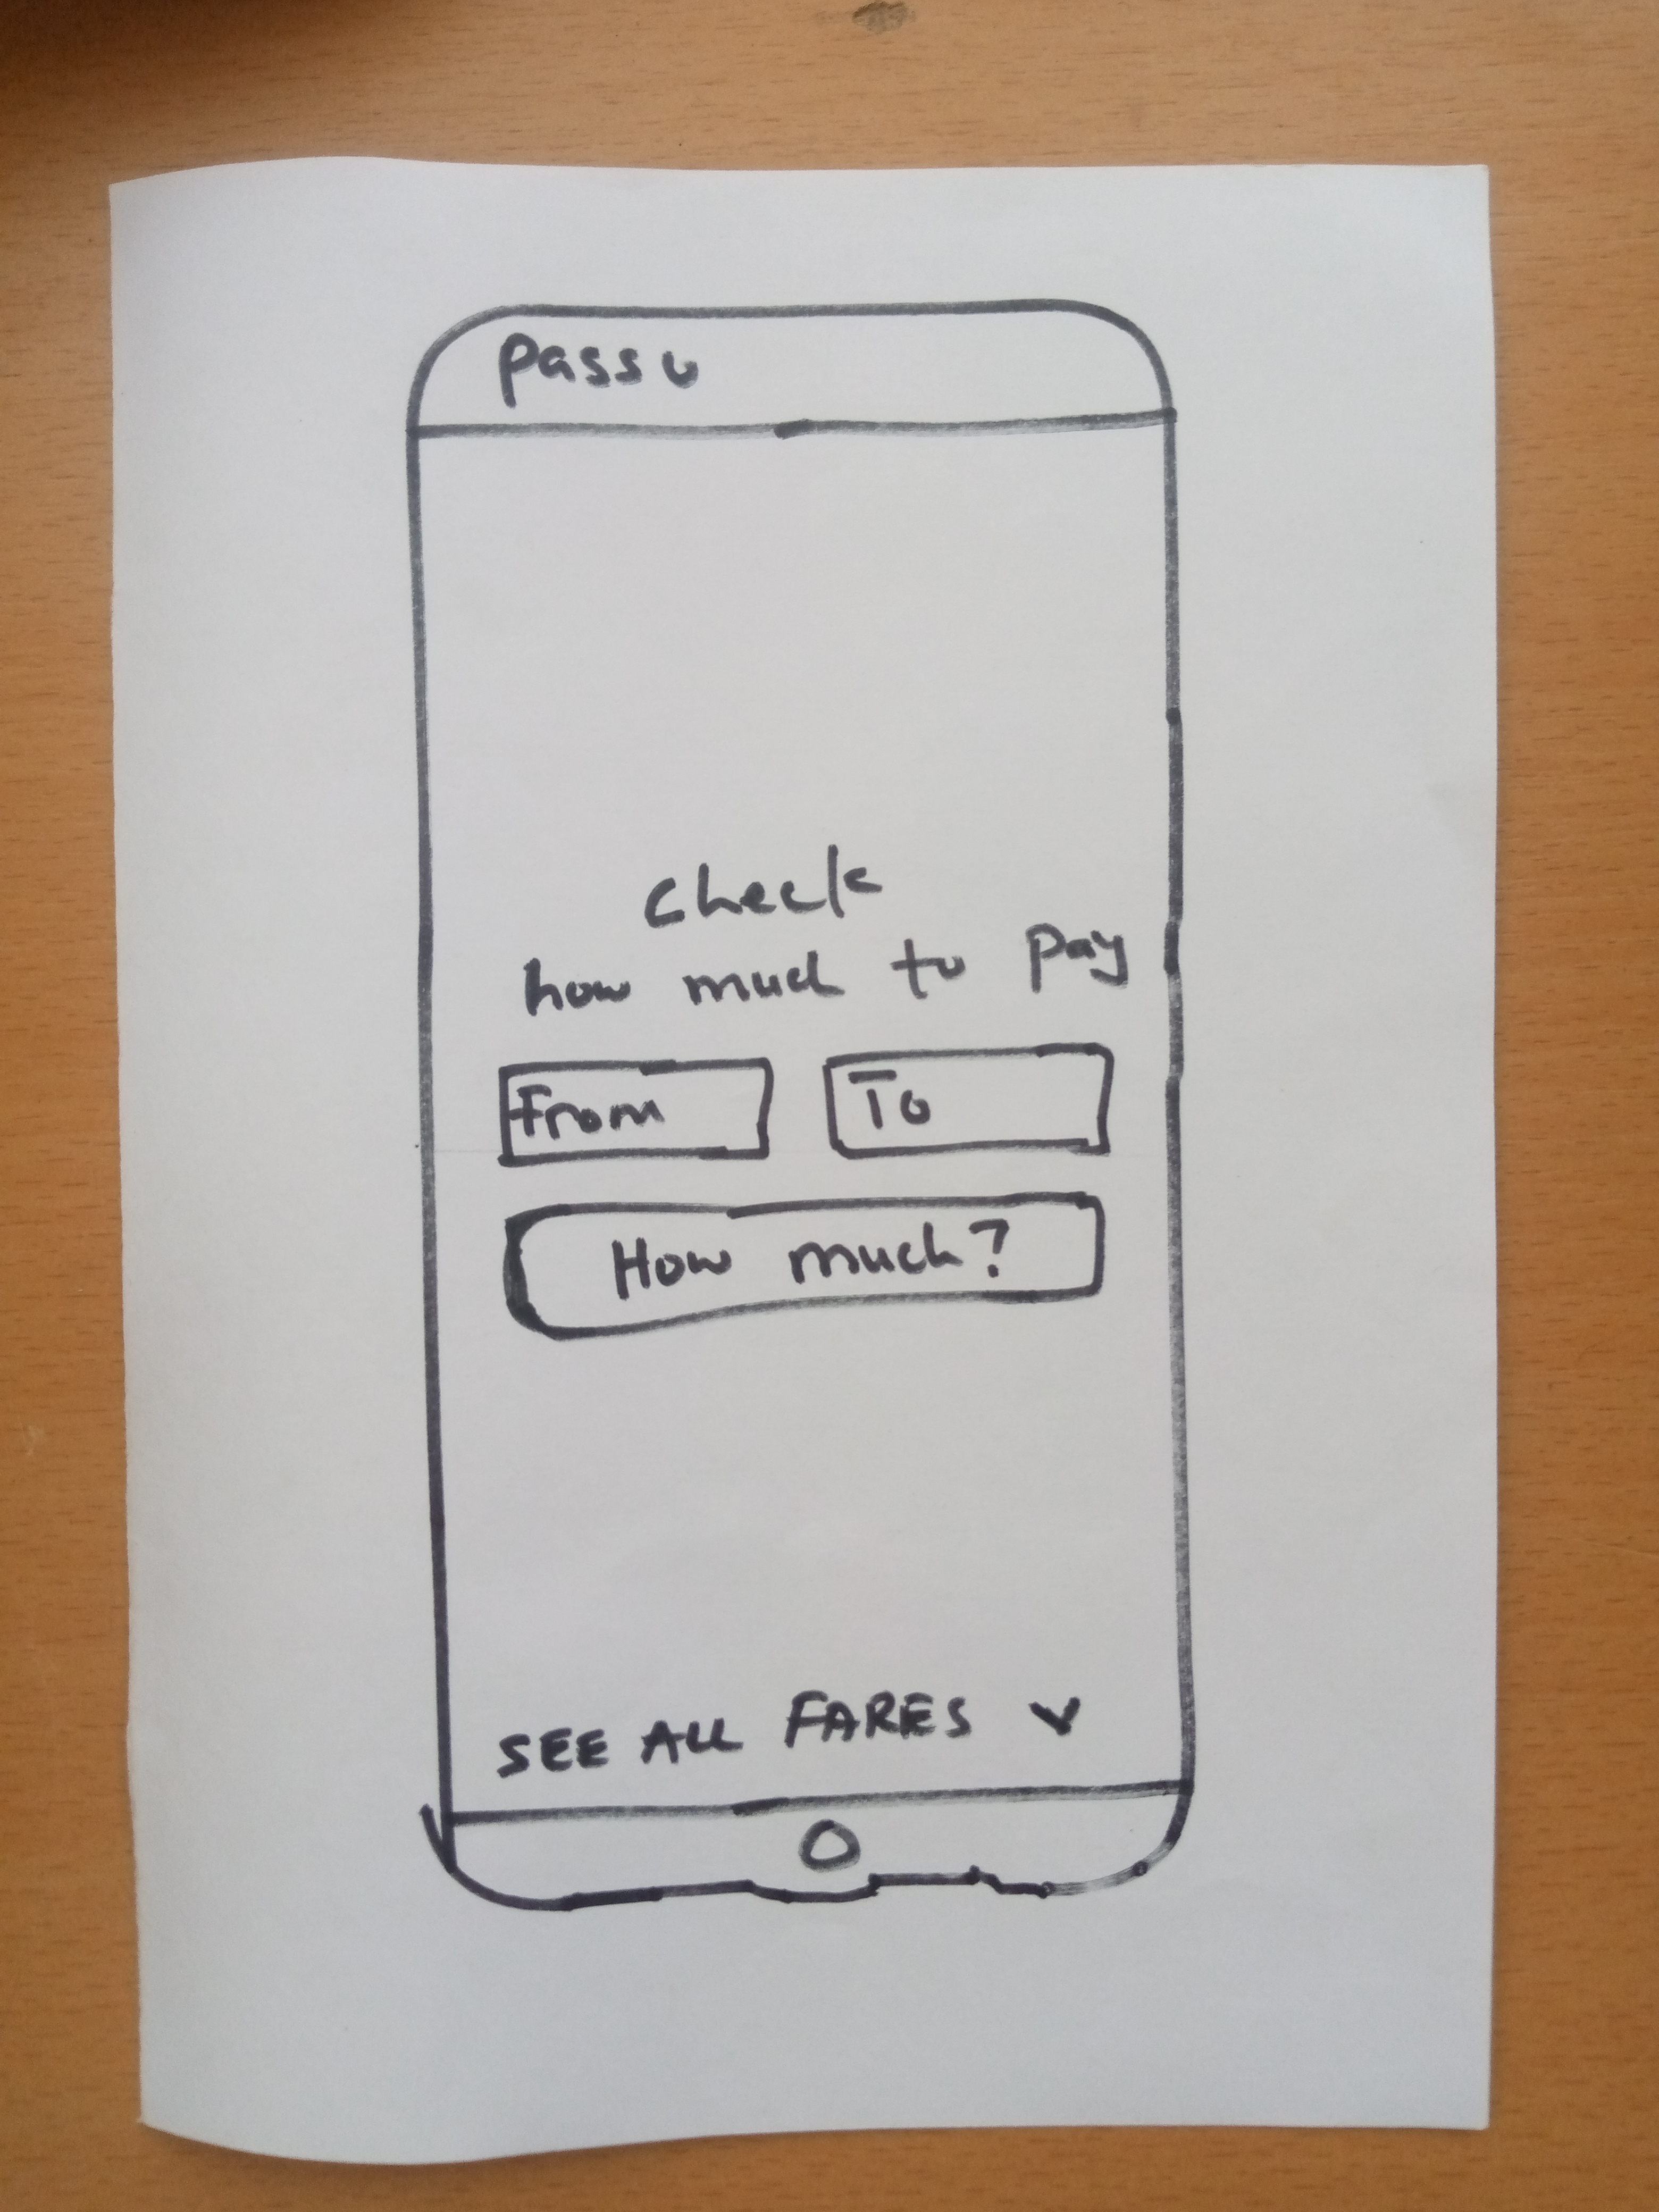 Passo
check
how much to pay
From To
How much?
SEE ALL FARES